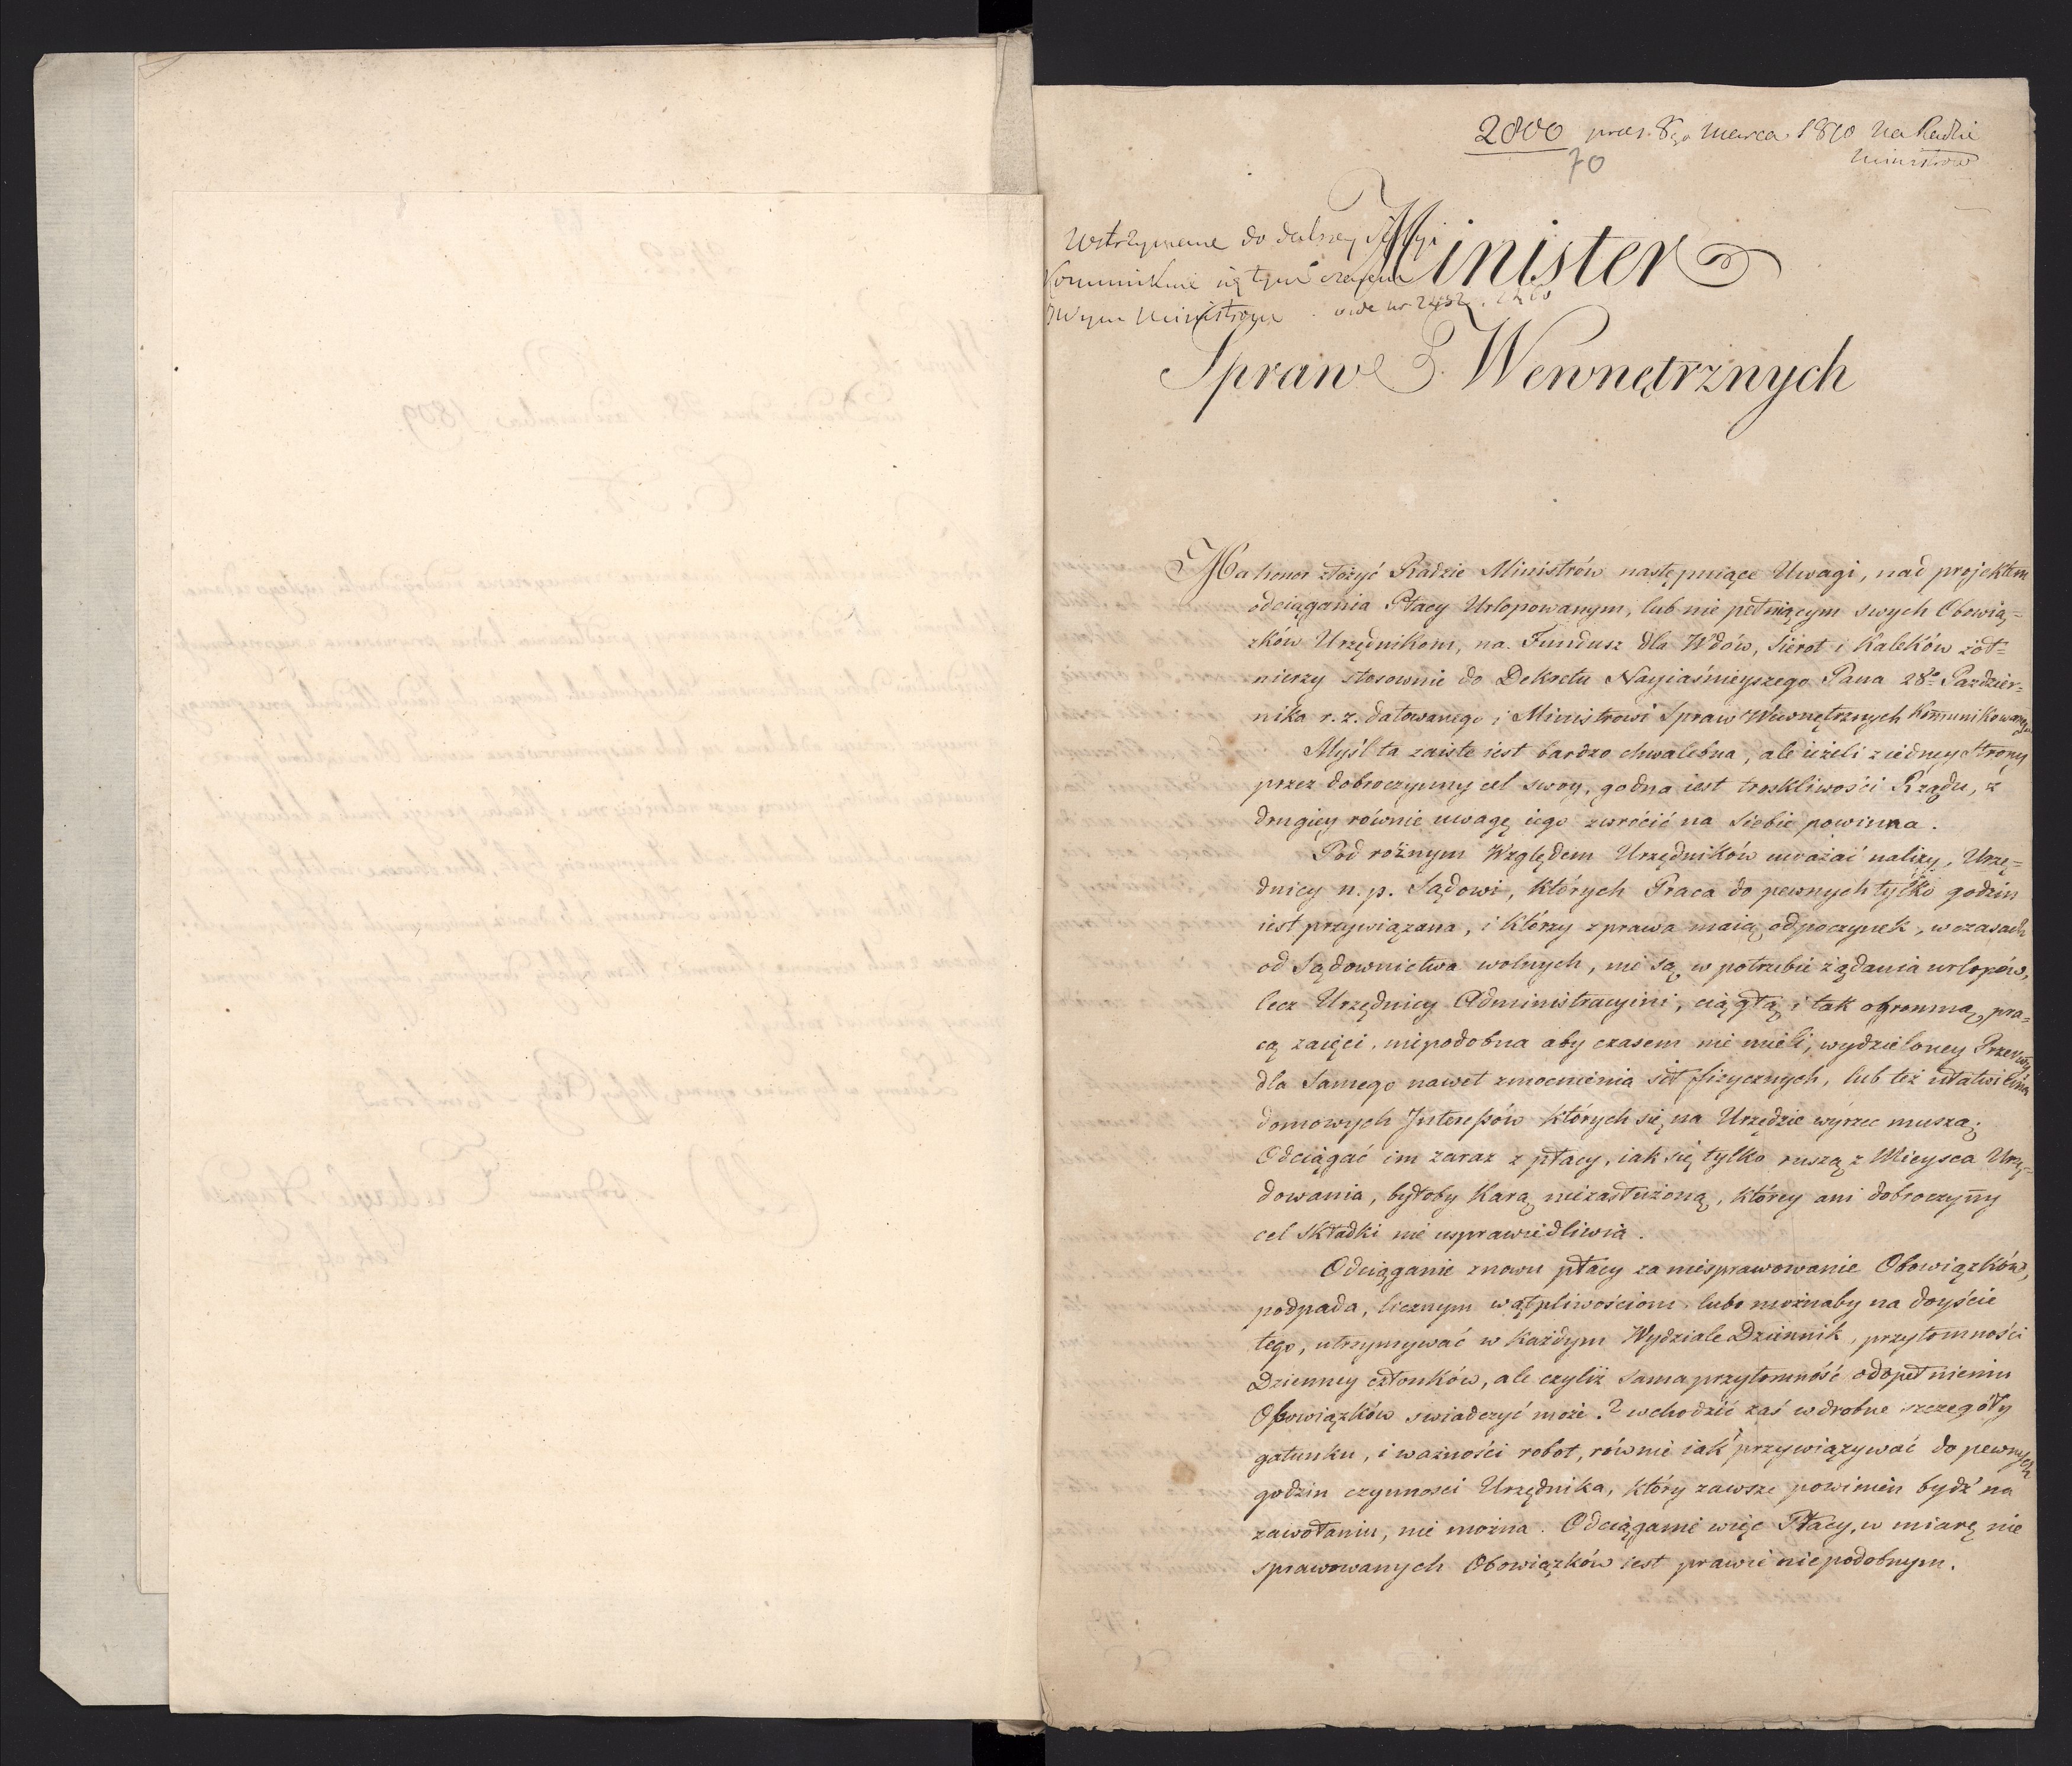 2800 prez. 8go Marca 1810 na Radzie
Ministrow
70
Wstrzymane do dalszey Sessyi
Kommunikuie się tym czasem
JWym Ministrom . vide nr
Minister
Spraw Wewnętrznych
Ma honor złożyć Radzie Ministrów następuiące Uwagi, nad projektem
odciągania Płacy Urlopowanym, lub nie pełniącym swych Obowią=
zków Urzędnikom, na Fundusz dla Wdów, Sierot i Kaleków żoł=
nierzy stosownie do Dekretu Nayiaśnieyszego Pana 28o Paździer=
nika r. z. datowanego i Ministrowi Spraw Wewnętrznych kom̄unikowanego
Myśl ta zaiste iest bardzo chwalebna, ale ieżeli z iedney Strony
przez dobroczynny cel swoy, godna iest troskliwości Rządu, z
drugiey równie uwagę iego zwrócić na Siebie powinna.
Pod rożnym Względem Urzędników uważać należy, Urzę=
dnicy n. p. Sądowi, których Praca do pewnych tylko godzin
iest przywiązana, i którzy z prawa maią odpoczynek, w czasach
od Sądownictwa wolnych, nie są w potrzebie żądania urlopów,
lecz Urzędnicy Administracyini, ciągłą i tak ogromną pra=
cą zaięci, niepodobna aby czasem nie mieli, wydzieloney Przerwy
dla Samego nawet zmocnienia sił fizycznych, lub też ułatwienia
domowych Interessów których się na Urzędzie wyrzec muszą;
Odciągać im zaraz z płacy, iak się tylko ruszą z Mieysca Urzę=
dowania, byłoby Karą niezasłużoną, którey ani dobroczyn̄y
cel składki nie usprawiedliwia.
Odciąganie znowu płacy za niesprawowanie Obowiązków,
podpada, licznym wątpliwościom. lubo możnaby na doyście
tego, utrzymywać w każdym Wydziale Dziennik, przytomności
Dzienney członków, ale czyliż Sama przytomność o dopełnieniu
Obowiązków swiadczyć może? wchodzić zaś w drobne szczegóły
gatunku, i ważności robot, równie iak przywiązywać do pewnych
godzin czynnosci Urzędnika, który zawsze powinien bydź na
zawołaniu, nie można. Odciąganie więc Płacy, w miarę nie
sprawowanych Obowiązków iest prawie niepodobnym.